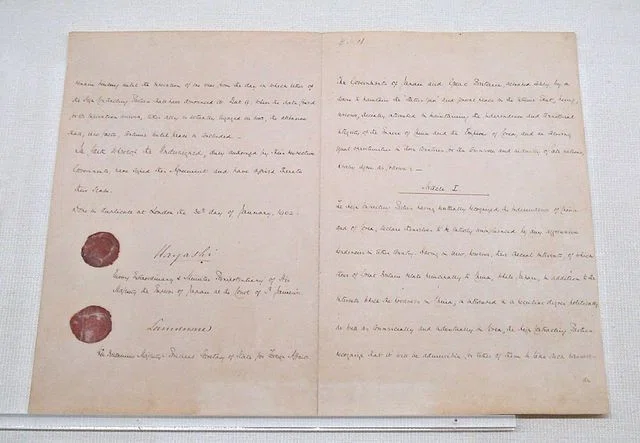 remain binding until the expiration of one year from the day on which either of
the High Contracting Parties shall have denounced it. But if, when the date fixed
for its expiration arrives, either ally is actually engaged in war, the alliance
shall, ipso facto, continue until peace is concluded. —
In faith whereof the Undersigned, duly authorized by their respective
Governments have signed this Agreement and have affixed thereto
their Seals.
Done in duplicate at London the 30th day of January, 1902.
Hayashi
Envoy Extraordinary & Minister Plenipotentiary of His
Majesty the Emperor of Japan at the Court of St James's.
Lansdowne
His Britannic Majesty's Principal Secretary of State for Foreign Affairs.
The Governments of Japan and Great Britain, actuated solely by a
desire to maintain the status quo and general peace in the extreme East, being,
moreover, specially interested in maintaining the independence and territorial
integrity of the Empire of China and the Empire of Corea, and in securing
equal opportunities in those countries for the commerce and industry of all nations,
hereby agree as follows: —
Article I.
The High Contracting Parties having mutually recognized the independence of China
and of Corea, declare themselves to be entirely uninfluenced by any aggressive
tendencies in either country. Having in view, however, their special interests of which
those of Great Britain relate principally to China, while Japan, in addition to the
interests which she possesses in China, is interested in a peculiar degree politically
as well as commercially and industrially in Corea, the High Contracting Parties
recognize that it will be admissible for either of them to take such measures